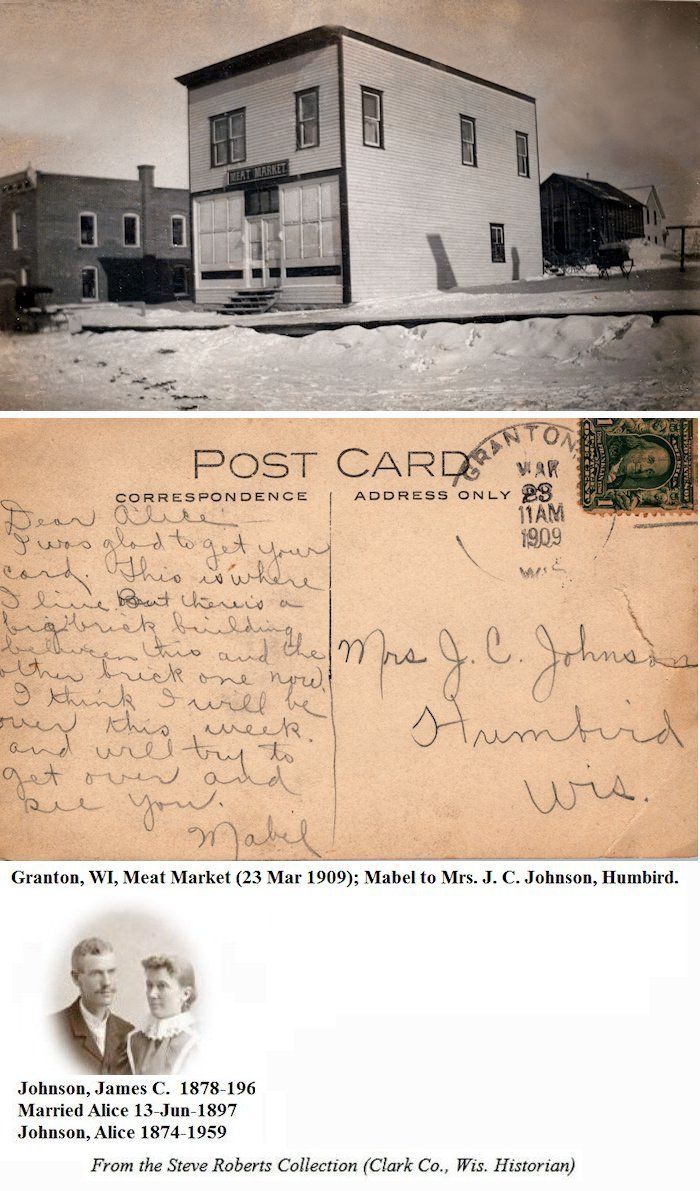 MEAT MARKET
POST CARD
CORRESPONDENCE
ADDRESS ONLY
GRANTON
MAR
23
11AM
1909
WIS
Dear Alice
I was glad to get your
card. This is where
I live But there is a
big brick building
between this and the
other brick one now.
I think I will be
over this week.
and will try to
get over and
see you.
Mabel
Mrs J. C. Johnson
Humbird
Wis.
Granton, WI, Meat Market (23 Mar 1909); Mabel to Mrs. J. C. Johnson, Humbird.
Johnson, James C.  1878-196
Married Alice 13-Jun-1897
Johnson, Alice 1874-1959
From the Steve Roberts Collection (Clark Co., Wis. Historian)